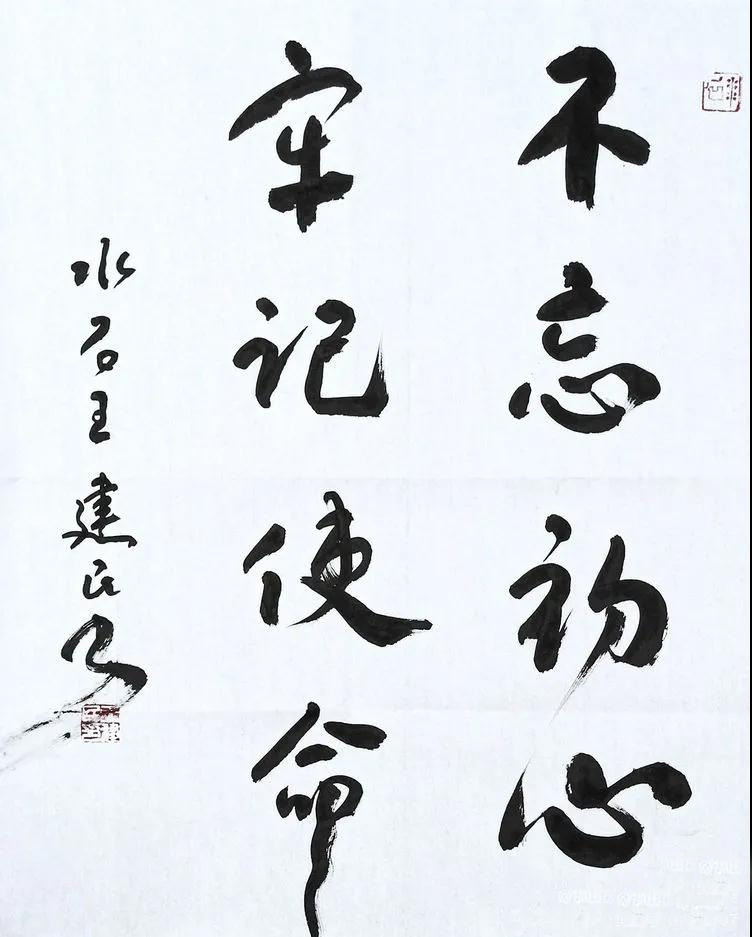 不忘初心
牢记使命
水石王建民书